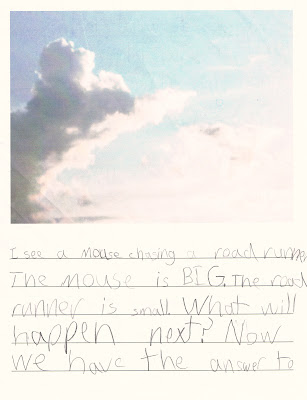 I see a mouse chasing a road runner
The mouse is BIG. The road
runner is small. What will
happen next? Now
we have the answer to